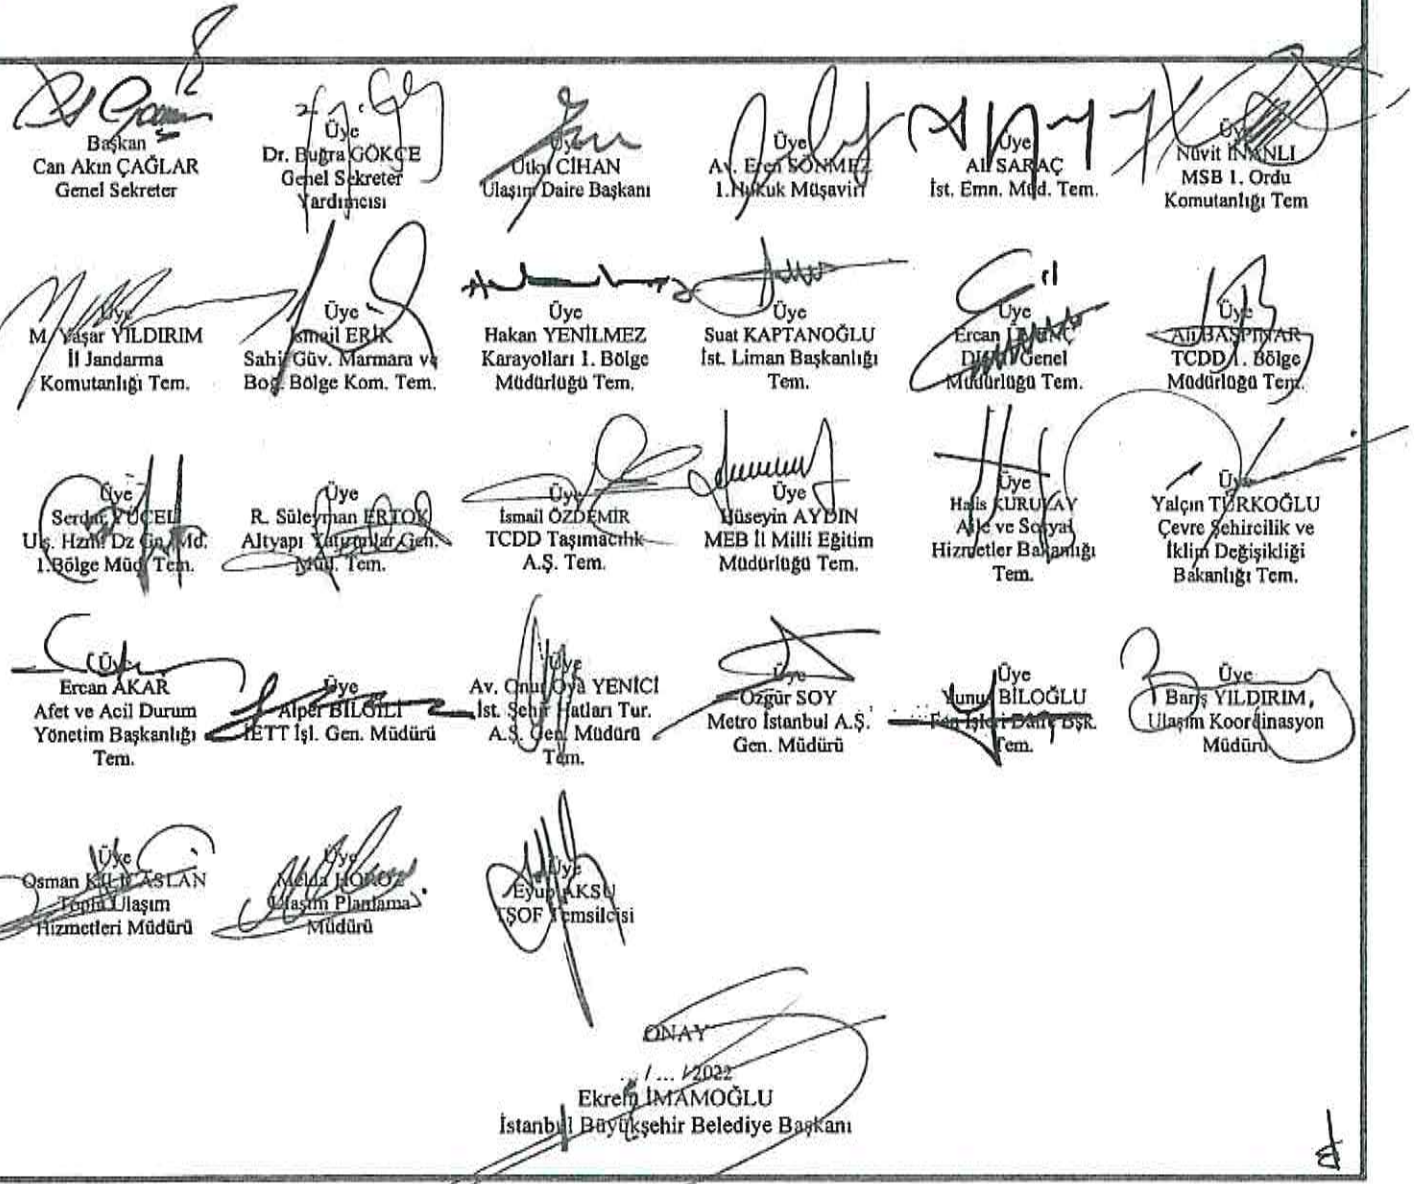 Başkan
Can Akın ÇAĞLAR
Genel Sekreter
Üye
Dr. Buğra GÖKÇE
Genel Sekreter
Yardımcısı
Üye
Utku CİHAN
Ulaşım Daire Başkanı
Üye
Av. Eren SÖNMEZ
1.Hukuk Müşaviri
Üye
Ali SARAÇ
İst. Emn. Müd. Tem.
Üye
Nüvit İNANLI
MSB 1. Ordu
Komutanlığı Tem
Üye
M. Yaşar YILDIRIM
İl Jandarma
Komutanlığı Tem.
Üye
İsmail ERİK
Sahil Güv. Marmara ve
Boğ. Bölge Kom. Tem.
Üye
Hakan YENİLMEZ
Karayolları 1. Bölge
Müdürlüğü Tem.
Üye
Suat KAPTANOĞLU
İst. Liman Başkanlığı
Tem.
Üye
Ercan
Genel
Müdürlüğü Tem.
Üye
Ali BAŞPINAR
TCDD 1. Bölge
Müdürlüğü Tem.
Üye
Serdar YÜCEL
Ulş. Hzm. Dz Md.
1.Bölge Müd. Tem.
Üye
R. Süleyman ERTOK
Altyapı Yatırımlar Gen.
Müd. Tem.
Üye
İsmail ÖZDEMİR
TCDD Taşımacılık
A.Ş. Tem.
Üye
Hüseyin AYDIN
MEB İl Milli Eğitim
Müdürlüğü Tem.
Üye
Halis KURUÇAY
Aile ve Sosyal
Hizmetler Bakanlığı
Tem.
Üye
Yalçın TÜRKOĞLU
Çevre Şehircilik ve
İklim Değişikliği
Bakanlığı Tem.
Üye
Ercan AKAR
Afet ve Acil Durum
Yönetim Başkanlığı
Tem.
Üye
Alper BİLGİLİ
İETT İşl. Gen. Müdürü
Üye
Av. Onur Oya YENİCİ
İst. Şehir Hatları Tur.
A.Ş. Gen. Müdürü
Tem.
Üye
Özgür SOY
Metro İstanbul A.Ş.
Gen. Müdürü
Üye
Yunus BİLOĞLU
Fen İşleri Daire Bşk.
Tem.
Üye
Barış YILDIRIM,
Ulaşım Koordinasyon
Müdürü
Üye
Osman KILIÇASLAN
Toplu Ulaşım
Hizmetleri Müdürü
Üye
Melda HOROZ
Ulaşım Planlama
Müdürü
Üye
Eyup AKSU
TŞOF Temsilcisi
ONAY
... / ... /2022
Ekrem İMAMOĞLU
İstanbul Büyükşehir Belediye Başkanı